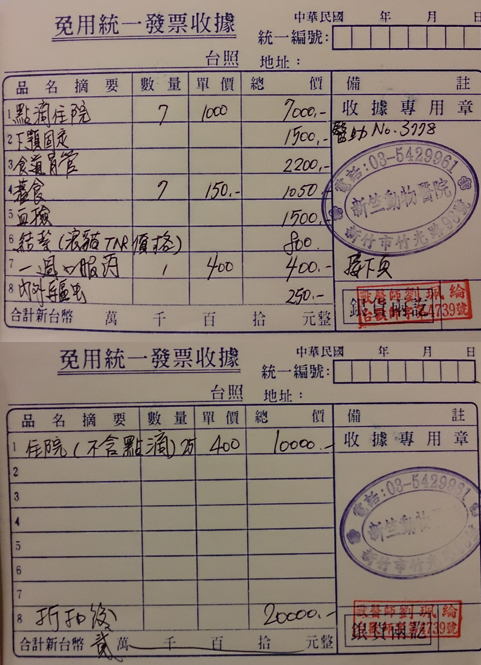 免用統一發票收據
中華民國 年 月 日
統一編號:
台照 地址:
品名摘要 數量 單價 總價 備註
1 點滴住院 7 1000 7000.- 收據專用章
2 下顎固定 1500.- 醫助No.3778
3 食道胃管 2200.-
4 養食 7 150.- 1050.-
5 血檢 1500.-
6 結紮(浪貓TNR價格) 800.-
7 一週口服药 1 400 400.- 接下頁
8 內外驅虫 250.-
合計新台幣 萬 千 百 拾 元整 銀貨兩訖
電話:03-5429961
新竺動物醫院
新竹市竹光路98號
免用統一發票收據
中華民國 年 月 日
統一編號:
台照 地址:
品名摘要 數量 單價 總價 備註
1 住院(不含點滴) 25 400 10000.- 收據專用章
2
3
4
5
6
7
8 折扣後 20000.-
合計新台幣 貳萬 千 百 拾 元整 銀貨兩訖
電話:03-5429961
新竺動物醫院
新竹市竹光路98號